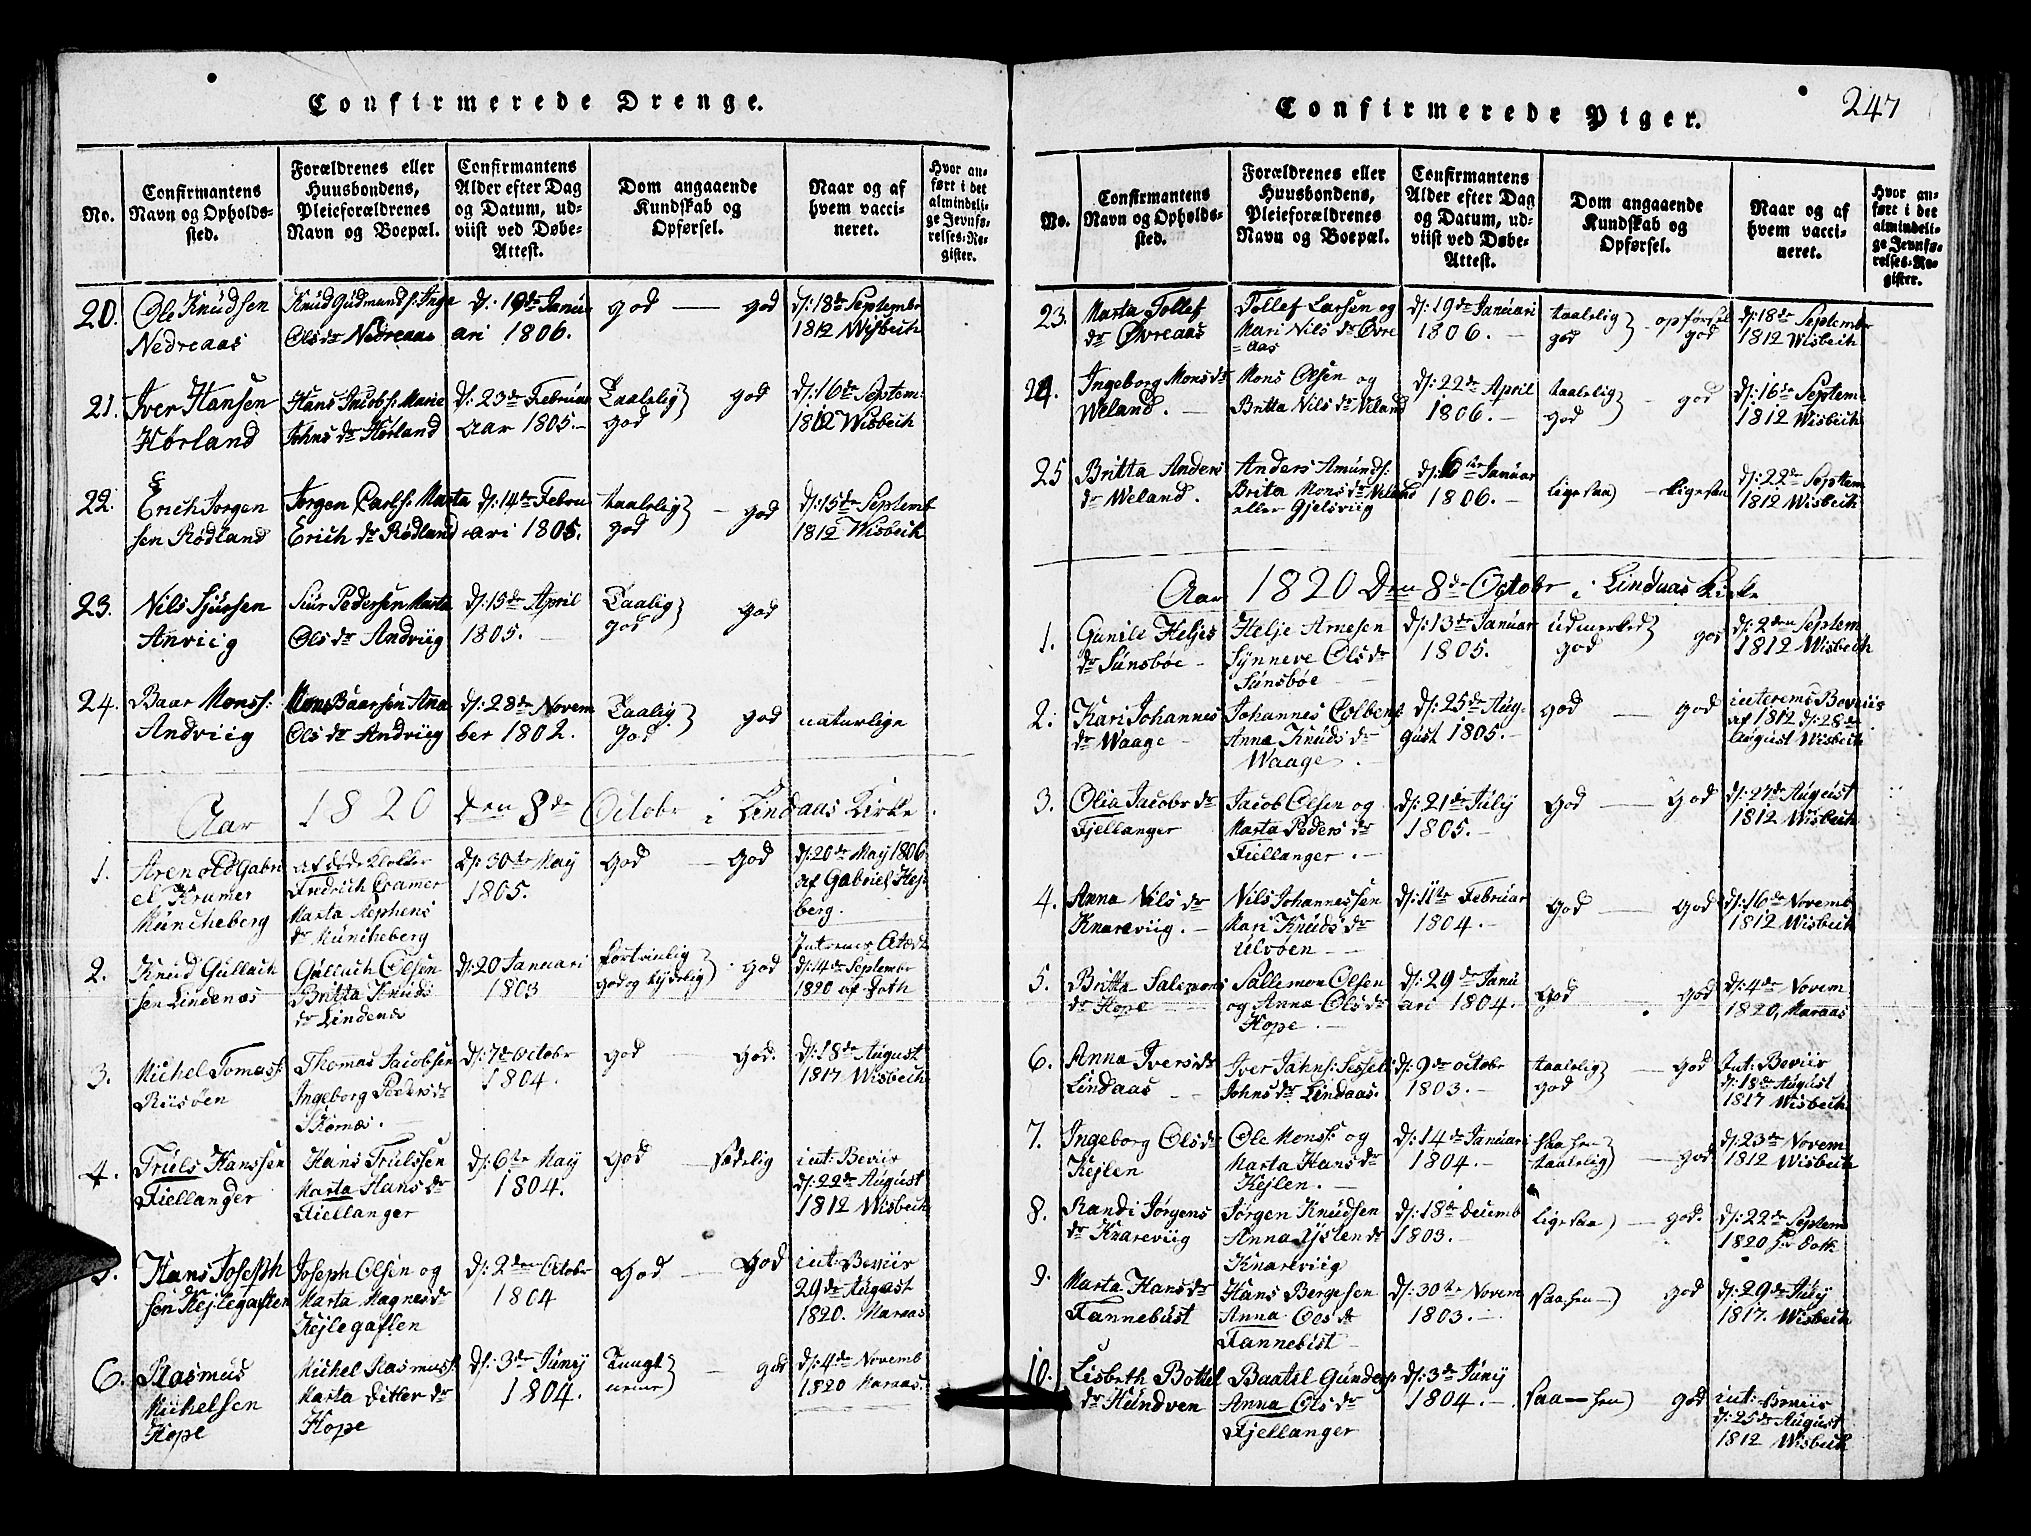 Confirmerede Drenge.
No.
Confirmantens
Navn og Opholds-
sted.
Forældrenes eller
Huusbondens,
Pleieforældrenes
Navn og Boepæl.
Confirmantens
Alder efter Dag
og Datum, ud-
viist ved Døbe-
Attest.
Dom angaaende
Kundskab og
Opførsel.
Naar og af
hvem vacci-
neret.
Hvor an-
ført i det
almindeli-
ge Jevnfø-
relses-Re-
gister.
20. Ole Knudsen
Nedreaas
Knud Gudmunds: Inga
Ols dr Nedreaas
d: 19de Janu
ari 1806.
god — god
d: 18de Septembr
1812 Wisbech
21. Iver Hansen
Hørland
Hans Jacobs: Marie
Johns dr Hørland
d: 23de Februar
Aar 1805.-
Taalelig
god
god
d: 16de Septem:
1812 Wisbech
22. Erich Jorgen
sen Rødland
Jorgen Carls: Marta
Erich dr Rødland
d: 14de Febru
ari 1805.
taalelig
god
- god
d: 15de Septemb
1812 Wisbech
23. Nils Sjursen
Anviig
Siur Pedersen Marta
Ols dr Andviig
d: 15de April
1805.
Taalig
god
god
24. Baar Monss:
Andviig
Mons Baarsen Ana
Ols dr Andviig
d: 28de Novem
ber 1802.
Taalig
god
god
naturlige
Aar 1820 Den 8de Octobr i Lindaas Kirke.
1. Arenold Gabri
el Kramer
Muncheberg
afdøde Kloller
Fredrich Cramer
Marta Stephens
dr Muncheberg
d: 30te May
1805.
God — God
d: 20de May 1806
af Gabriel Hej
berg.
2. Knud Gullach
sen Lindenes
Gullach Olsen
Britta Knuds
dr Lindenes
d: 20 Januari
1803
fortrinlig
god og lydelig
- god
d: 14de Septembr
1820 af Joth
3. Michel Tomass:
Riisøen
Thomas Jacobsen
Ingeborg Peders dr
Stornæs.
d: 7de Octobr
1804.
god god.
d: 18de August
1817 Wisbech
4. Truls Hanssen
Fiellanger
Hans Trulssen
Marta Hans dr
Fiellanger
d: 6te May
1804.
god — Sædelig
int: Beviis
d: 22de August
1812 Wisbech
5. Hans Joseph
sen Kejlegaften
Joseph Olsen og
Marta Magnes dr
Kejlegaflen
d: 2den Octobr
1804
God — God
int: Beviis
29de August
1820. Maraas
6. Rasmus
Michelsen
Hope
Michel Rasmuss:
Marta Ditter dr
Hope
d: 3de Junij
1804.
Tungt
nemt
- god
d: 4de Novemb
1820 Maraas.
Confirmerede Piger.
247
No.
Confirmantens
Navn og Opholds-
sted.
Forældrenes eller
Huusbondens,
Pleieforældrenes
Navn og Boepæl.
Confirmantens
Alder efter Dag
og Datum, ud-
viist ved Døbe-
Attest.
Dom angaaende
Kundskab og
Opførsel.
Naar og af
hvem vacci-
neret.
Hvor an-
ført i det
almindeli-
ge Jevnfø-
relses-Re-
gister.
23. Marta Tollef
dr Øvreaas
Tollef Larsen og
Mari Nils dr Øvre
=aas
d: 19de Januari
1806.
taalelig
god
- opførsel
god
d: 18de Septembr
1812 Wisbech
24. Ingeborg Mons dr
Weland. -
Mons Olsen og
Britta Nils dr Weland
d: 22de April
1806. -
taalelig
god
- god
d: 16de Septem:
1812 Wisbech
25 Britta Anders
dr Weland.
Anders Amunds:
Brita Mons dr Weland
eller Gjelsviig
d: 6te Januar
1806. -
ligesaa - ligesaa
d: 22de Septem
1812 Wisbech
Aar 1820 Den 8de Octobr i Lindaas Kirke
1. Gunile Heljes
dr Sunsbøe -
Helje Arnesen
Synneve Ols dr
Sunsbøe
d: 13de Januar
1805.
udmerked
god
god
d: 2den Septem
1812 Wisbech
2. Kari Johannes
dr Waage -
Johannes Colbens:
Anna Knuds dr
Waage.
d: 25de Aug-
gust 1805. -
god — god
Beviis
af 1812 d: 28de
August Wisbech
3. Olia Jacobs dr
Fjellanger
Jacob Olsen og
Marta Peders dr
Fiellanger. -
d: 21de July
1805. -
God — God
d: 27de August
1812 Wisbech
4. Anna Nils dr
Knareviig. -
Nils Johannessen
Mari Knuds dr
Ulvøen
d: 11te Februar
1804. -
God — God
d: 16de Novemb
1812 Wisbech
5. Britta Salemons
dr Hope
Sallemon Olsen
og Anna Ols dr
Hope. -
d: 29de Janu
ari 1804.
God — god
d: 4de Novem
1820, Maraas
6. Anna Ivers dr
Lindaas
Iver Jahns: Sessel
Johns dr Lindaas.
d: 9de octobr
1803. -
taalelig
god
— god
Int: Beviis
d: 18de August
1817 Wisbech
7. Ingeborg Ols dr
Kejlen
Ole Monss: og
Marta Hans dr
Kejlen. -
d: 14de Januari
1804. -
taalelig
— god
d: 23de Novem
1812 Wisbech
8. Randi Jørgens
dr Knareviig
Jørgen Knudsen
Anna Øysten dr
Knareviig
d: 18de Decemb
1803. -
ligesaa — god.
d: 22de Septem
1820 Joth
9. Marta Hans dr
Fannebust
Hans Bergesen
Anna Ols dr
Fannebust
d: 30te Novem
1803. -
god
d: 29de July
1817. Wisbech
10. Lisbeth Bottel
dr Hundven
Baatel Gunders:
Anna Ols dr
Fjellanger
d: 3de Juny
1804. -
god
int: Beviis
d: 25de August
1812 Wisbech